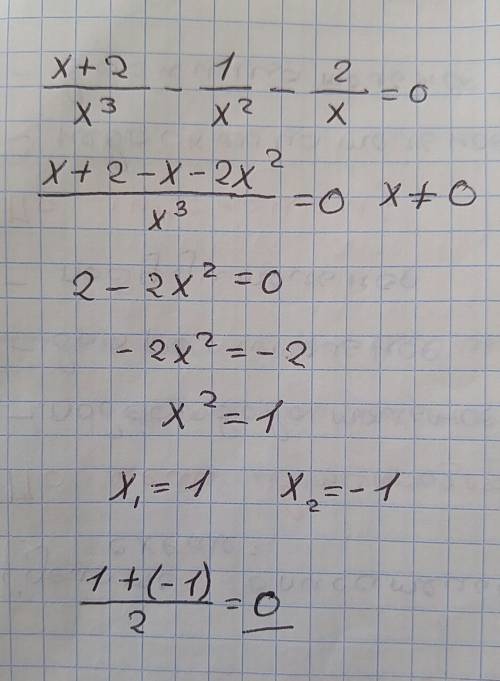 (x+2)/x³ - 1/x² - 2/x = 0
(x+2-x-2x²)/x³ = 0   x ≠ 0
2 - 2x² = 0
-2x² = -2
x² = 1
x₁ = 1   x₂ = -1
(1+(-1))/2 = 0